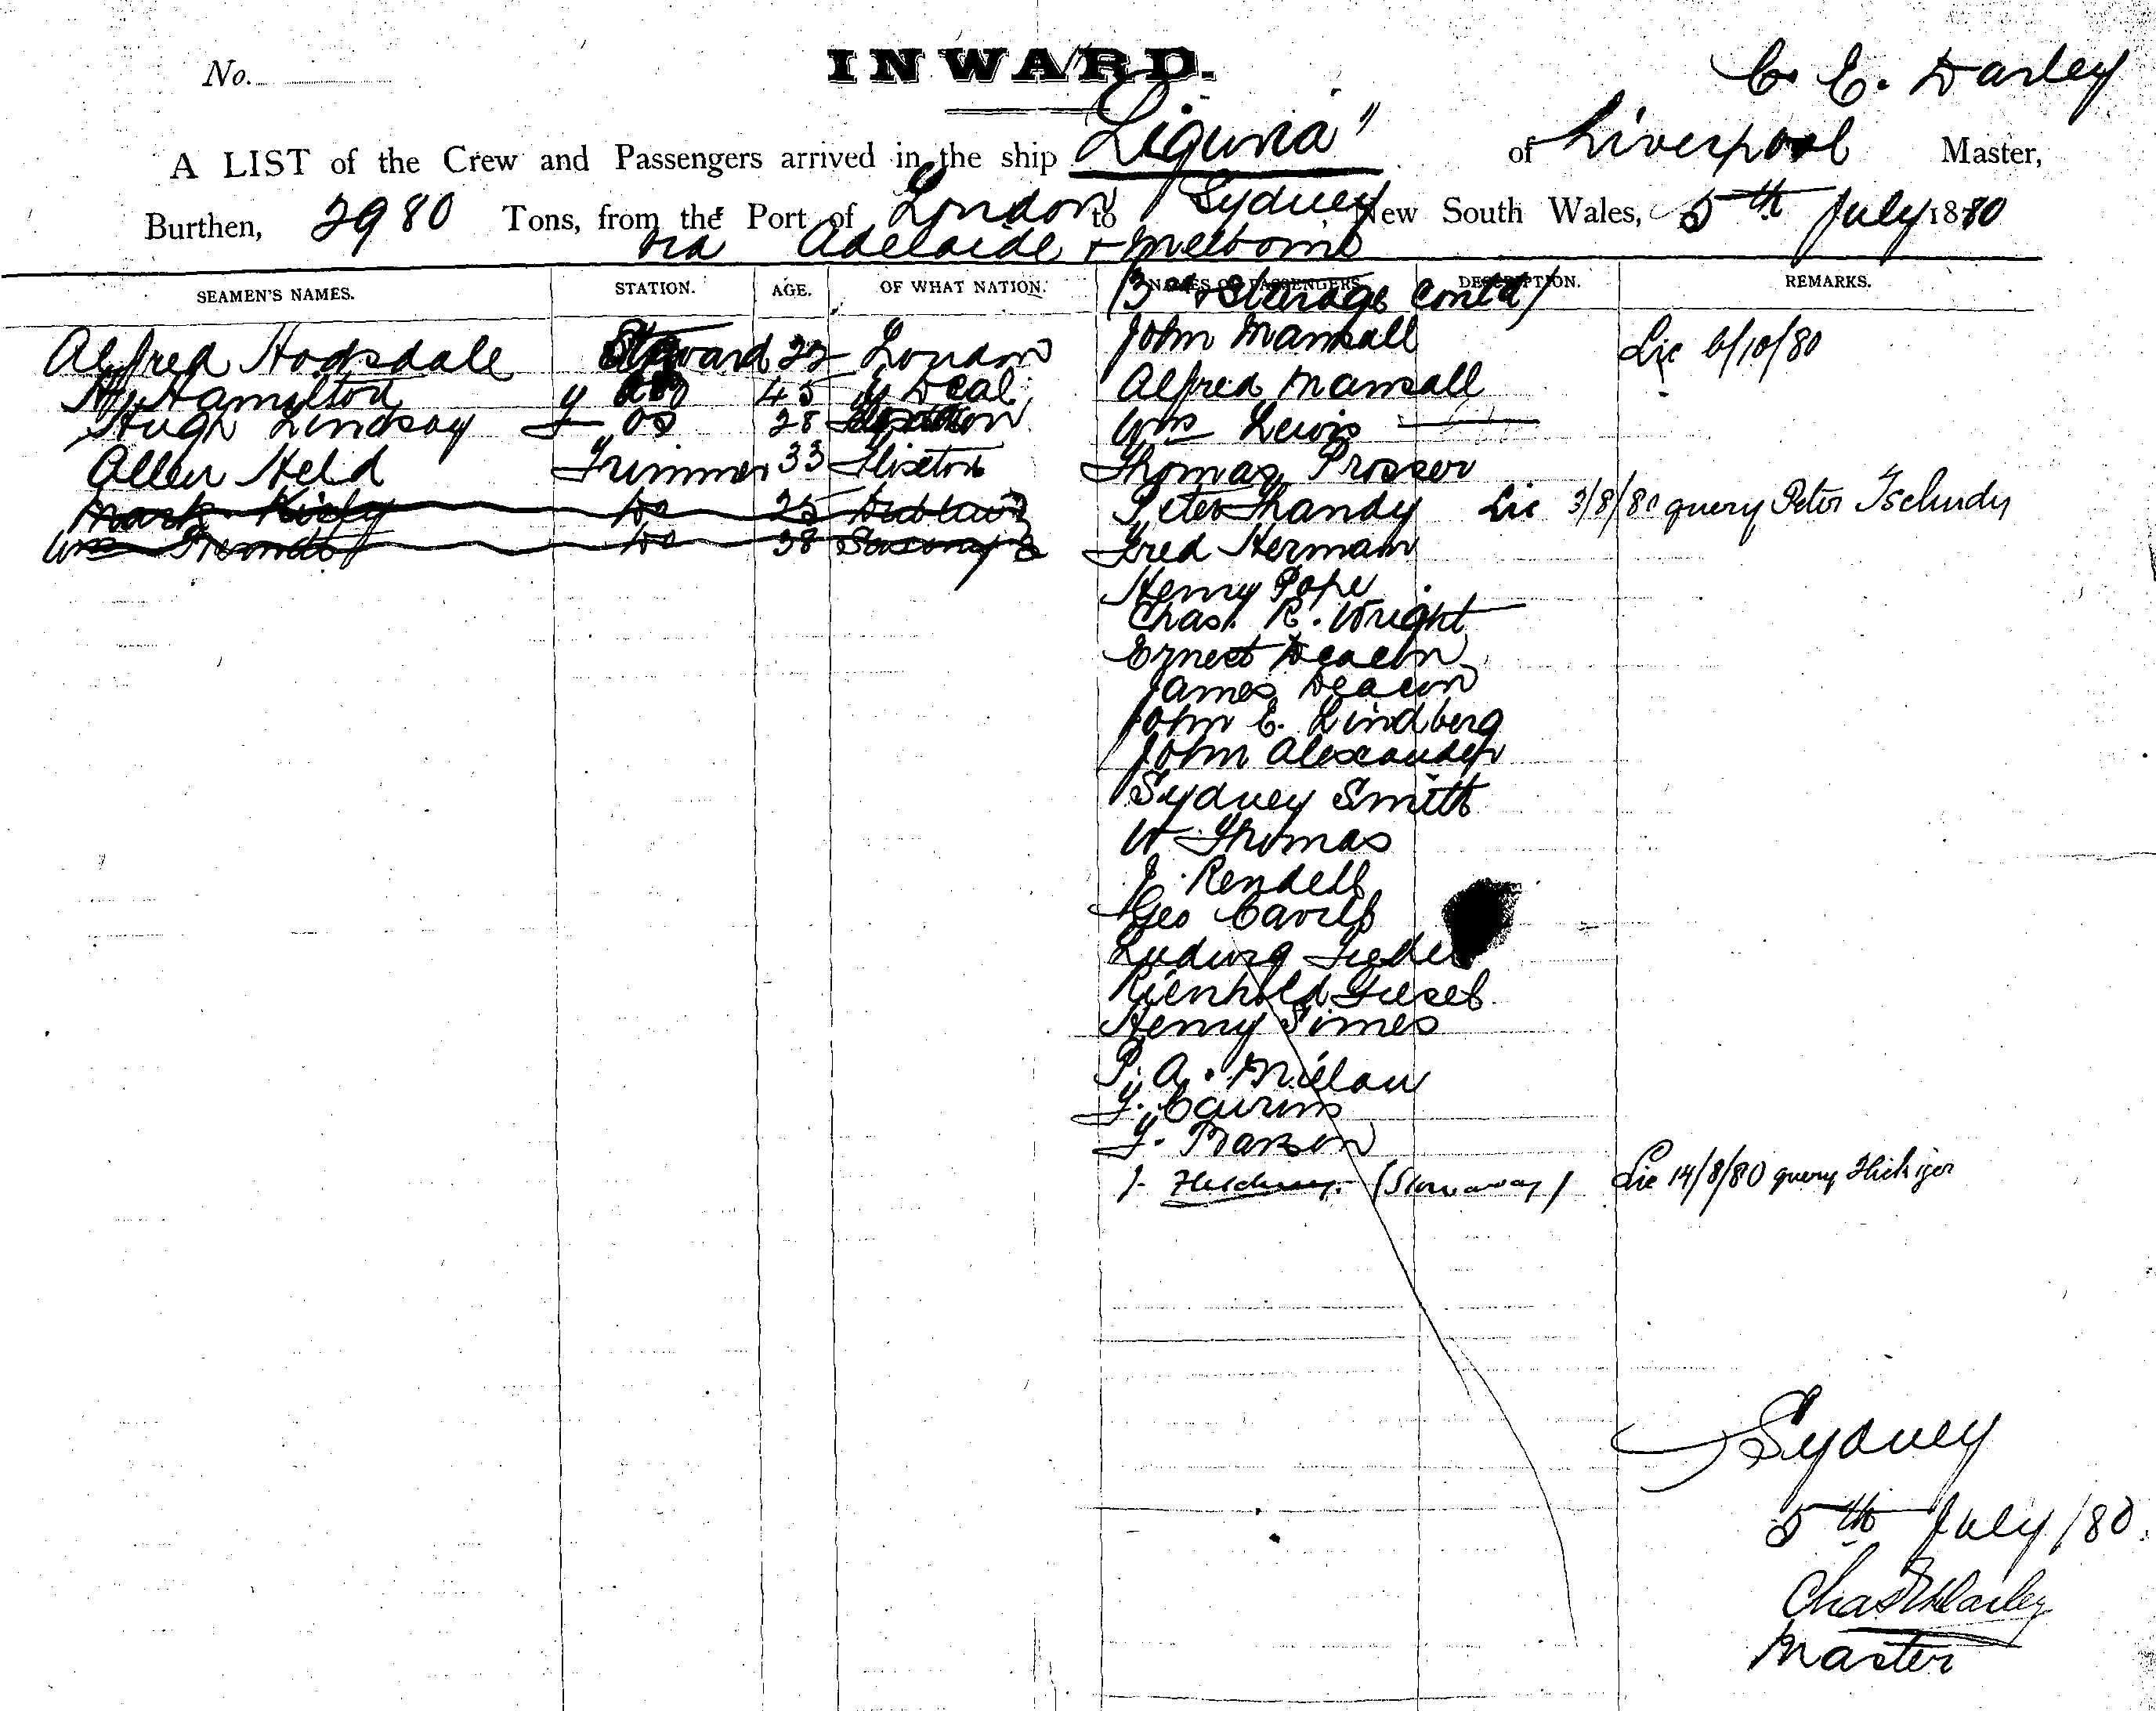 No.
INWARD.
C. E. Darley
A LIST of the Crew and Passengers arrived in the ship Liguria" of Liverpool Master,
Burthen, 2980 Tons, from the Port of London to Sydney New South Wales, 5th July 1880
via Adelaide + Melborne
SEAMEN'S NAMES. STATION. AGE. OF WHAT NATION. NAMES OF PASSENGERS. DESCRIPTION. REMARKS.
(3rd & Steerage Contd)
Alfred Hodsdale Steward 22 London John Mansall Lic 6/10/80
Hy Hamilton 45 Deal Alfred Mansall
Hugh Lindsay 28 Wm Lewis
Allen Held Trimmer 33 Flixton Thomas Prosser
Mark Kirby Do 25 Peter Thandy Lic 3/8/80 query Peter Tschudy
Wm Do 38 Saxony Fred Herman
Henry Pope
Chas. R. Wright
Ernest Deacon
James Deacon
John E. Lindberg
John Alexander
Sydney Smith
W Thomas
J. Rendell
Geo Cavill
Ludwig
Rienhold Giesel
Henry Simes
P. A. Milow
T. Cairns
T. Branson
J. (Stowaway) Lic 14/8/80 query
Sydney
5th July /80.
Chas E Darley
Master